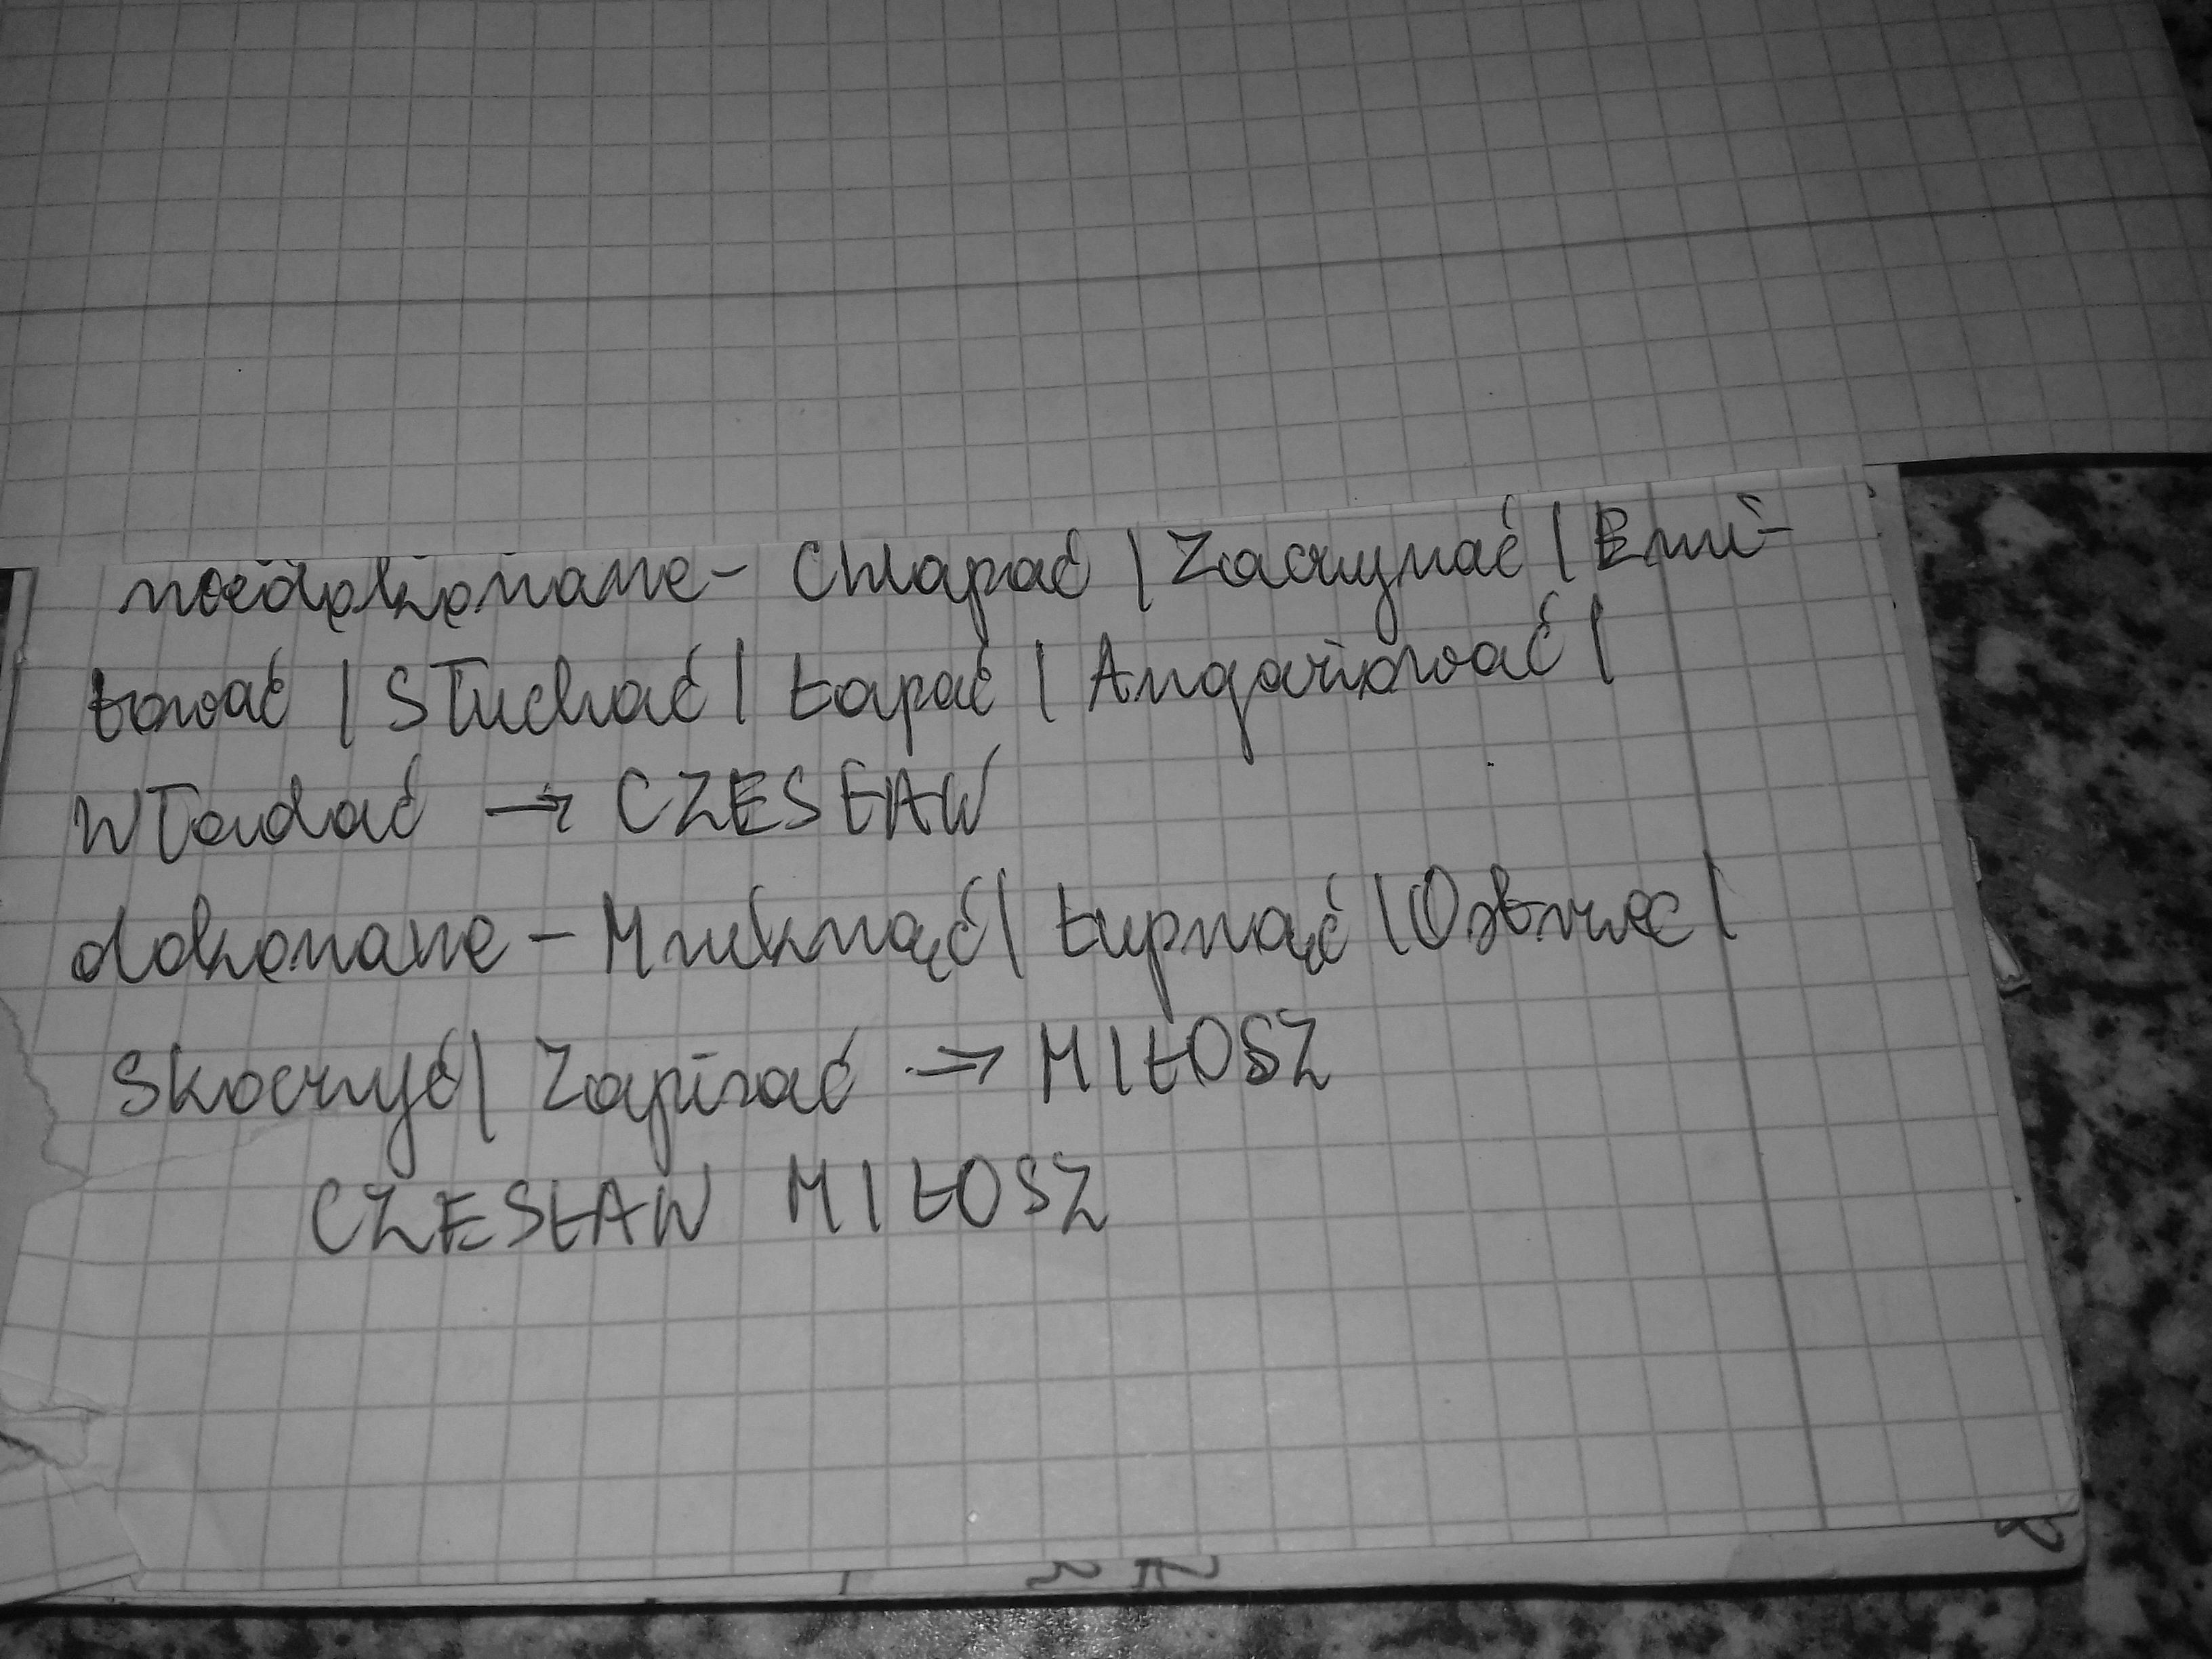 niedokonane - Chlapać / Zaczynać / Emi-
tować / Słuchać / Łapać / Angażować /
Władać → CZESŁAW
dokonane - Mruknąć / Łupnąć /
Skoczyć / Zapisać → MIŁOSZ
CZESŁAW MIŁOSZ